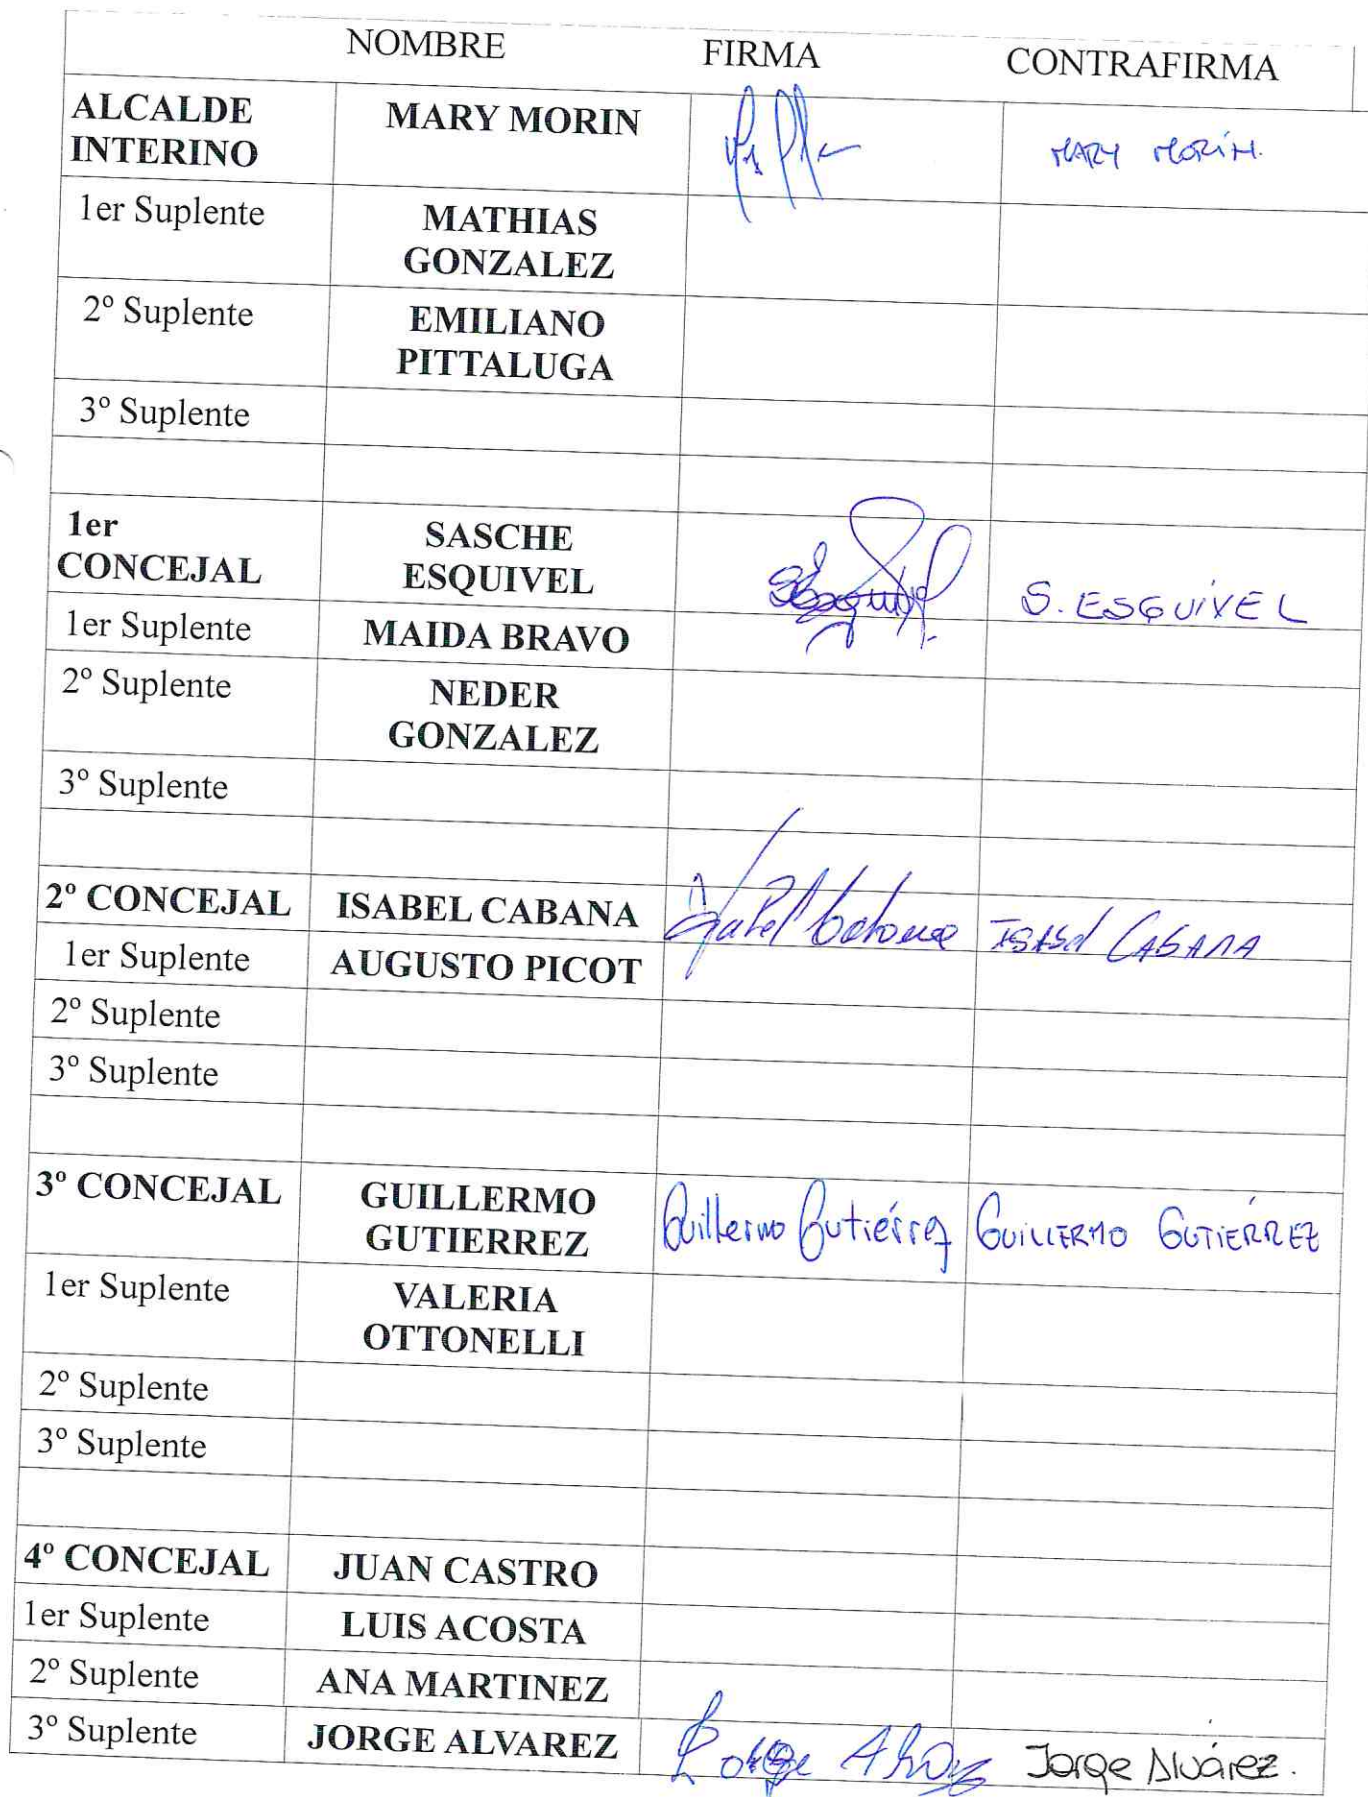 NOMBRE FIRMA CONTRAFIRMA
ALCALDE INTERINO MARY MORIN MARY MORÍN.
1er Suplente MATHIAS GONZALEZ
2º Suplente EMILIANO PITTALUGA
3º Suplente
1er CONCEJAL SASCHE ESQUIVEL S. ESQUIVEL
1er Suplente MAIDA BRAVO
2º Suplente NEDER GONZALEZ
3º Suplente
2º CONCEJAL ISABEL CABANA Isabel Cabana ISABEL CABANA
1er Suplente AUGUSTO PICOT
2º Suplente
3º Suplente
3º CONCEJAL GUILLERMO GUTIERREZ Guillermo Gutiérrez GUILLERMO GUTIÉRREZ
1er Suplente VALERIA OTTONELLI
2º Suplente
3º Suplente
4º CONCEJAL JUAN CASTRO
1er Suplente LUIS ACOSTA
2º Suplente ANA MARTINEZ
3º Suplente JORGE ALVAREZ Jorge Alvarez Jorge Alvárez.